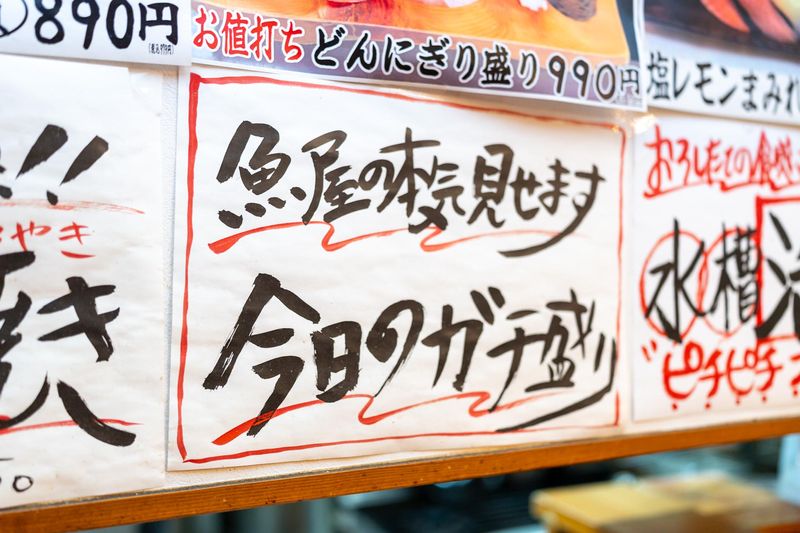 890円
(税込979円)
お値打ち どんにぎり盛り 990円
塩レモンまみれ
魚屋の本気見せます
今日のガチ盛り
!!
やき
き
おろしたての食べ
水槽
"ピチピチ